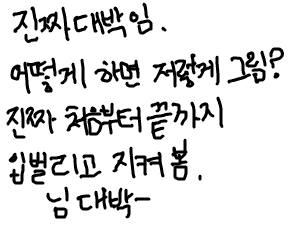 진짜 대박임.
어떻게 하면 저렇게 그림?
진짜 처음부터 끝까지
입벌리고 지켜봄.
님 대박-